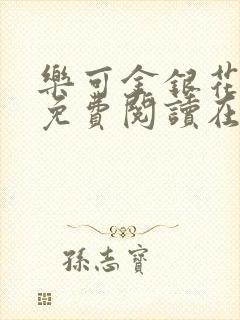 樂可金銀花
免費閱讀在
孫志寶